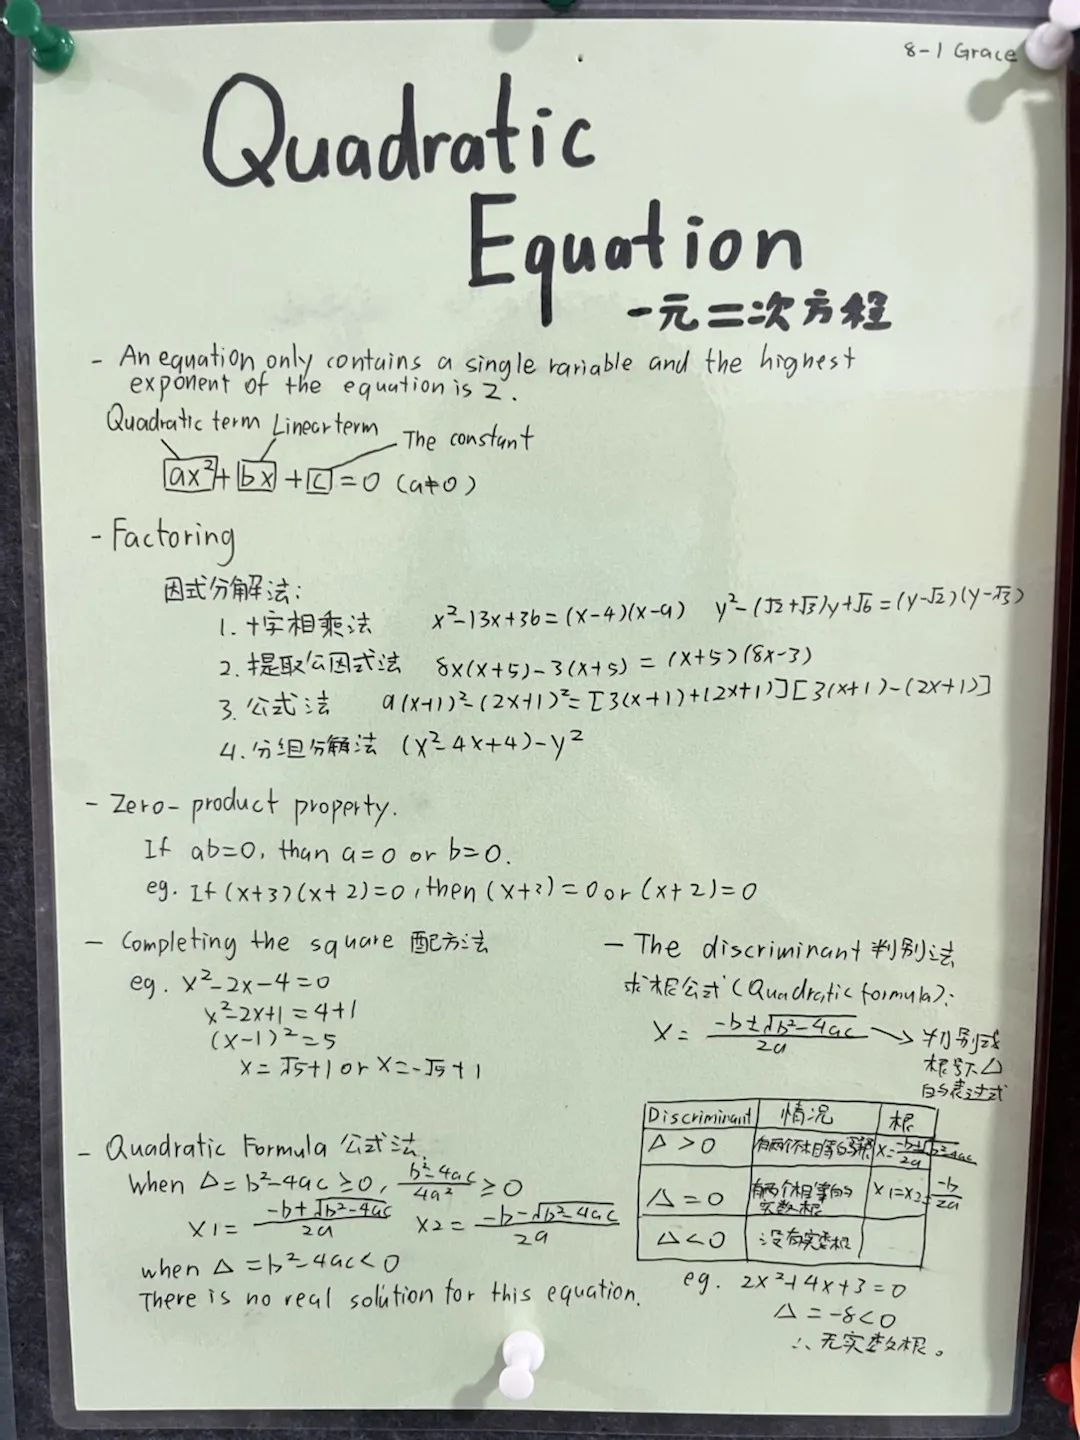 8-1 Grace
Quadratic
Equation
一元二次方程
- An equation only contains a single variable and the highest
exponent of the equation is 2.
Quadratic term Linear term The constant
ax²+bx+c=0 (a≠0)
- Factoring
因式分解法:
1. 十字相乘法 x²-13x+36=(x-4)(x-9) y²-(√2+√3)y+√6=(y-√2)(y-√3)
2. 提取公因式法 8x(x+5)-3(x+5)=(x+5)(8x-3)
3. 公式法 9(x+1)²-(2x+1)²=[3(x+1)+(2x+1)][3(x+1)-(2x+1)]
4. 分组分解法 (x²-4x+4)-y²
- Zero-product property.
If ab=0, than a=0 or b=0.
eg. If (x+3)(x+2)=0, then (x+3)=0 or (x+2)=0
- Completing the square 配方法
eg. x²-2x-4=0
x²-2x+1=4+1
(x-1)²=5
x=√5+1 or x=-√5+1
- Quadratic Formula 公式法.
when Δ=b²-4ac≥0, (b²-4ac)/4a²≥0
x1=(-b+√b²-4ac)/2a x2=(-b-√b²-4ac)/2a
when Δ=b²-4ac<0
There is no real solution for this equation.
- The discriminant 判别法
求根公式(Quadratic formula):
x=(-b±√b²-4ac)/2a → 判别式
根号下Δ
的表达式
Discriminant 情况 根
Δ>0 有两个不相等的实数根 x=(-b±√b²-4ac)/2a
Δ=0 有两个相等的实数根 x1=x2=-b/2a
Δ<0 没有实数根
eg. 2x²+4x+3=0
Δ=-8<0
∴无实数根。